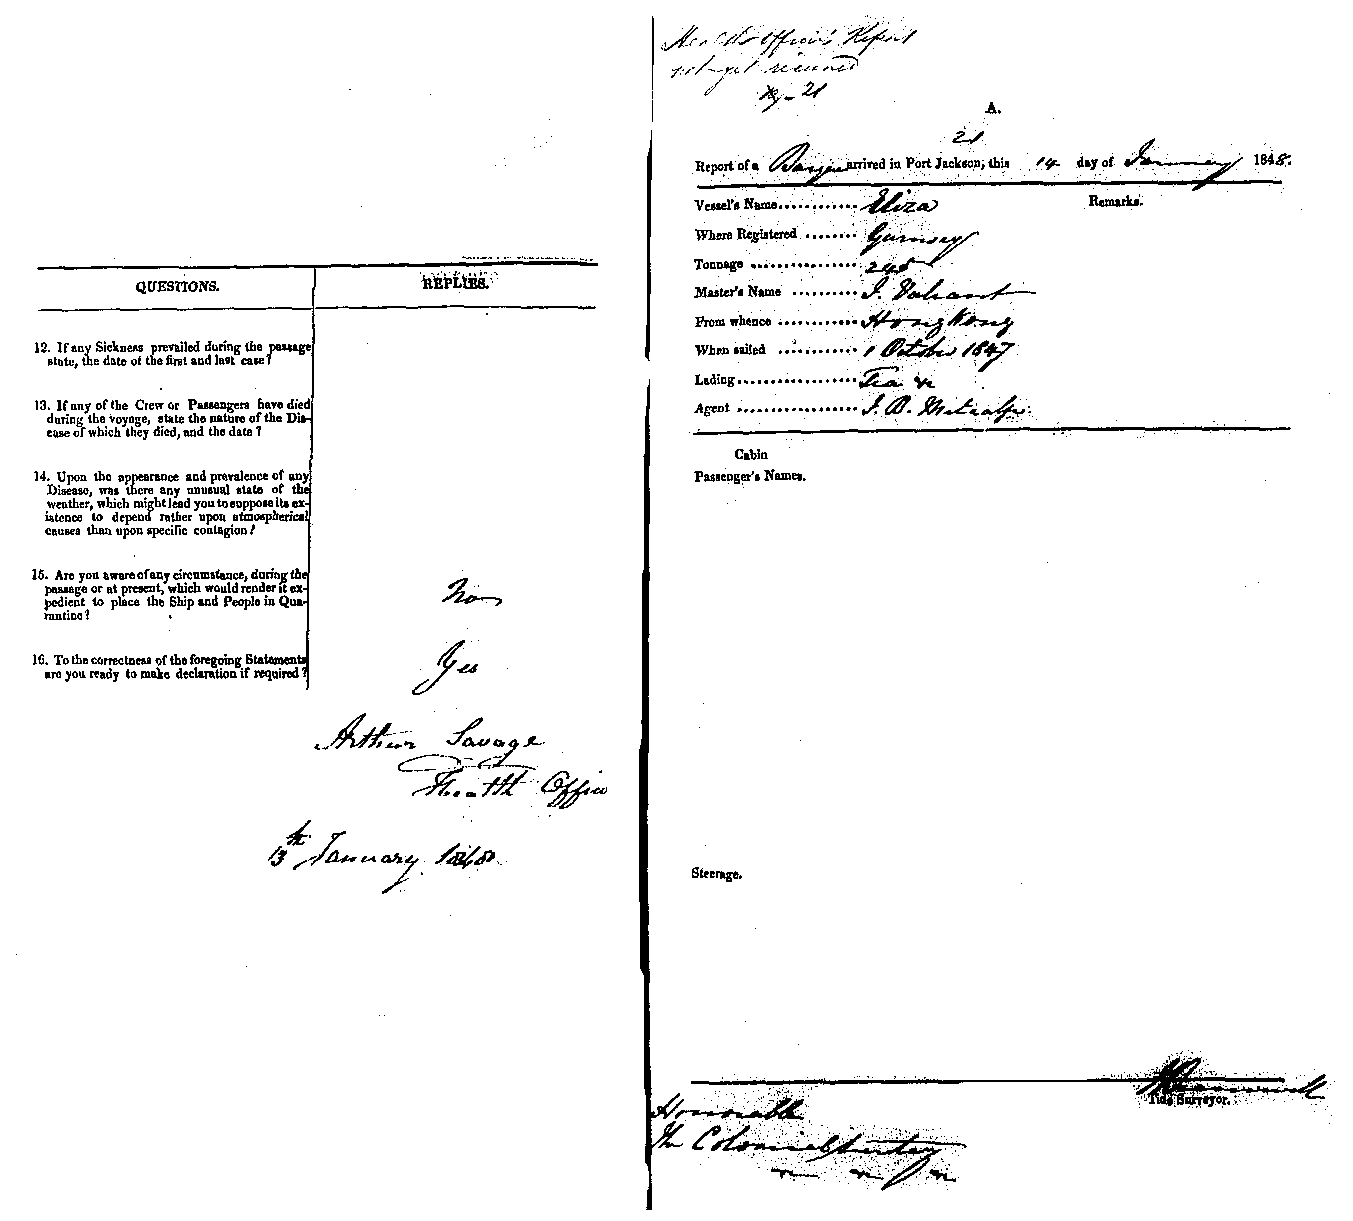 QUESTIONS.
REPLIES.
12. If any Sickness prevailed during the passage
state, the date of the first and last case?
13. If any of the Crew or Passengers have died
during the voyage, state the nature of the Dis-
ease of which they died, and the date?
14. Upon the appearance and prevalence of any
Disease, was there any unusual state of the
weather, which might lead you to suppose its ex-
istence to depend rather upon atmospherical
causes than upon specific contagion?
15. Are you aware of any circumstance, during the
passage or at present, which would render it ex-
pedient to place the Ship and People in Qua-
rantine?
No
16. To the correctness of the foregoing Statements
are you ready to make declaration if required?
Yes
Arthur Savage
Health Officer
13th January 1848
Health Officer's Report
not yet received
21
A.
21
Report of a arrived in Port Jackson, this 14 day of January 1848.
Vessel's Name Eliza
Remarks.
Where Registered Guernsey
Tonnage 245
Master's Name J. Valiant
From whence Hong Kong
When sailed 1 October 1847
Lading Tea &c
Agent J. B. Metcalfe
Cabin
Passenger's Names.
Steerage.
Tide Surveyor.
Honorable
The Colonial Secretary